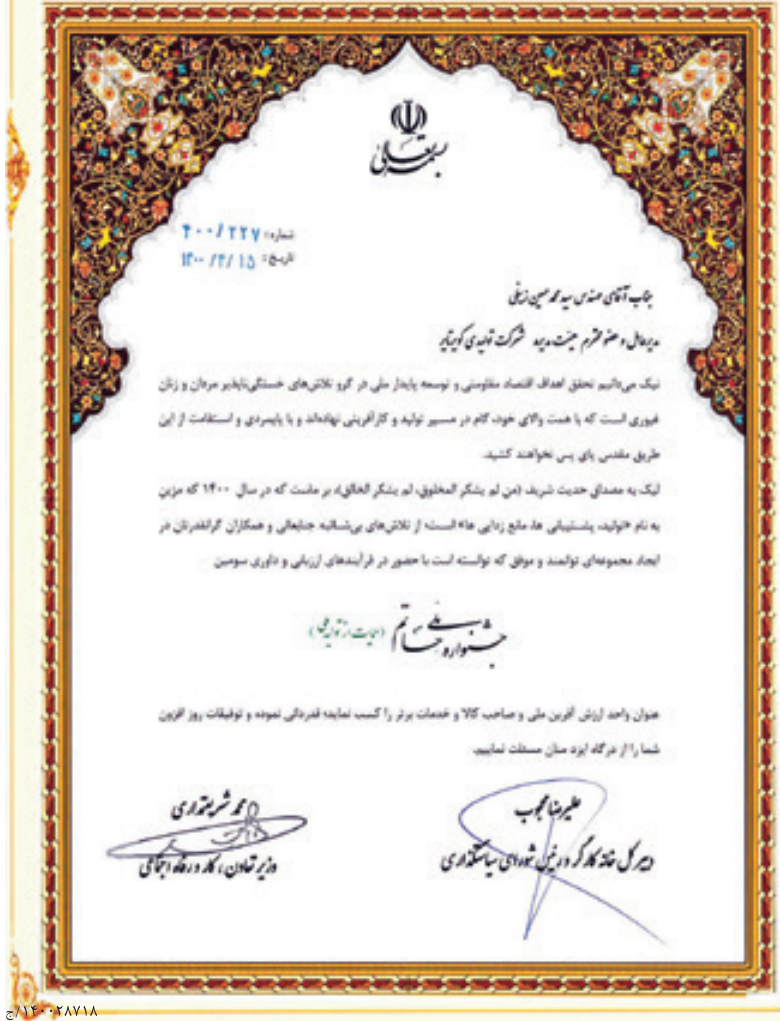 بسمه تعالی
شماره: ۴۰۰/۲۲۷
تاریخ: ۱۴۰۰/۴/۱۵
جناب آقای مهندس سید محمد حسین زینلی
مدیرعامل و عضو محترم هیئت مدیره شرکت تولیدی کویر تایر
نیک می‌دانیم تحقق اهداف اقتصاد مقاومتی و توسعه پایدار ملی در گرو تلاش‌های خستگی‌ناپذیر مردان و زنان
غیوری است که با همت والای خود، گام در مسیر تولید و کارآفرینی نهاده‌اند و با پایمردی و استقامت از این
طریق مقدس پای پس نخواهند کشید.
لیک به مصداق حدیث شریف (من لم یشکر المخلوق، لم یشکر الخالق)، بر ماست که در سال ۱۴۰۰ که مزین
به نام «تولید، پشتیبانی ها، مانع زدایی ها» است؛ از تلاش‌های بی‌شائبه جنابعالی و همکاران گرانقدرتان در
ایجاد مجموعه‌ای توانمند و موفق که توانسته است با حضور در فرآیندهای ارزیابی و داوری سومین
جشنواره ملی حاتم (حمایت از تولید ملی)
عنوان واحد ارزش آفرین ملی و صاحب کالا و خدمات برتر را کسب نماید؛ قدردانی نموده و توفیقات روز افزون
شما را از درگاه ایزد منان مسئلت نماییم.
علیرضا محجوب
دبیر کل خانه کارگر و رئیس شورای سیاستگذاری
محمد شریعتمداری
وزیر تعاون، کار و رفاه اجتماعی
۱۴۰۰۲۸۷۱۸/ج